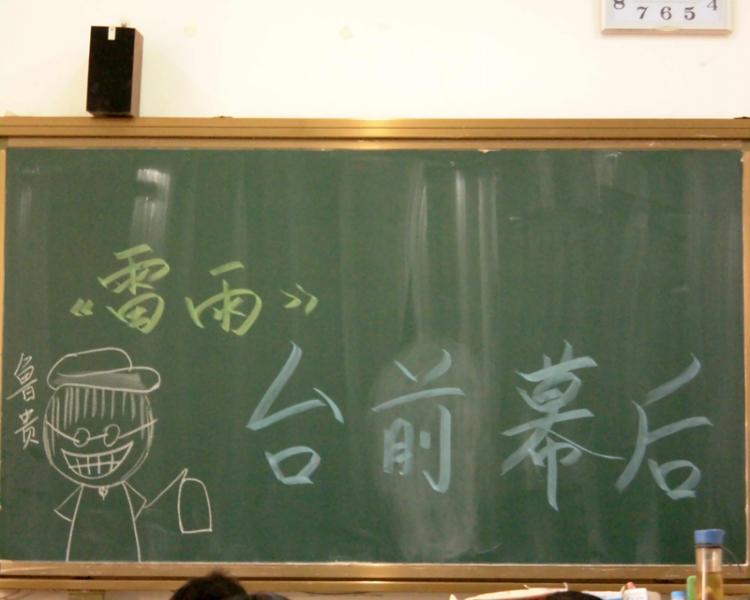 8 7 6 5 4
《雷雨》
台前幕后
鲁贵